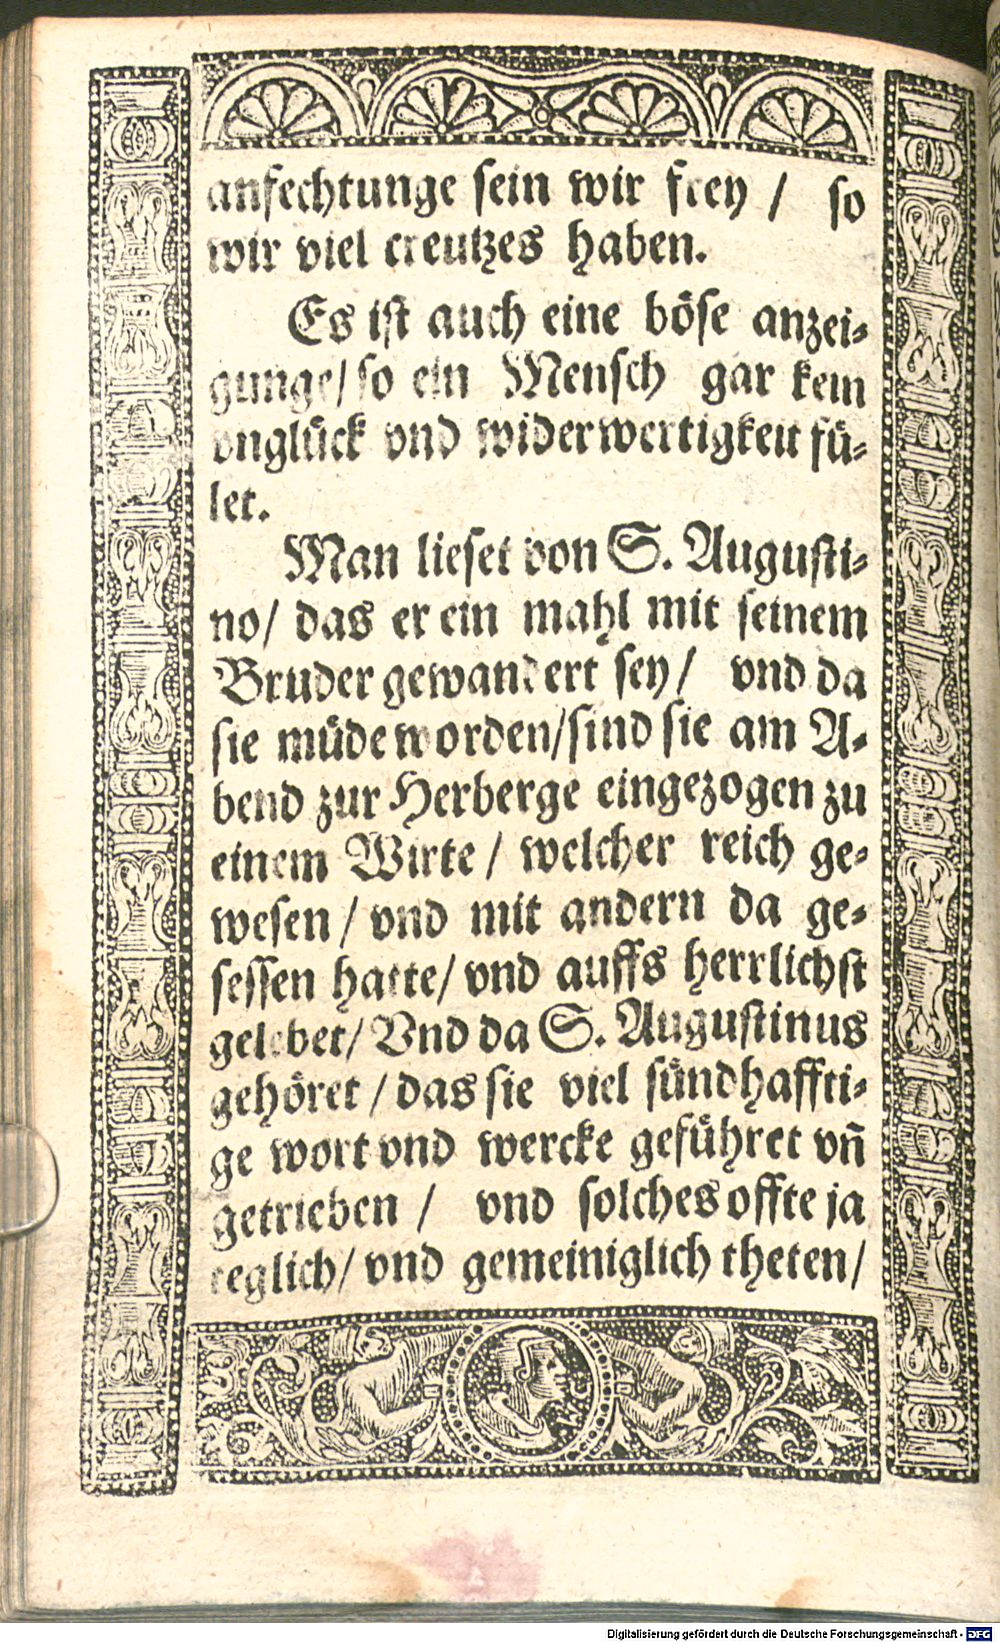 anfechtunge sein wir frey / so
wir viel creutzes haben.
Es ist auch eine böse anzei-
gunge/ so ein Mensch gar kein
vnglück vnd widerwertigkeit fü-
let.
Man lieset von S. Augusti-
no/ das er ein mahl mit seinem
Bruder gewandert sey/ vnd da
sie müde worden/sind sie am A-
bend zur Herberge eingezogen zu
einem Wirte / welcher reich ge-
wesen / vnd mit andern da ge-
sessen hatte/ vnd auffs herrlichst
gelebet/ Vnd da S. Augustinus
gehöret / das sie viel sündhaffti-
ge wort vnd wercke geführet vn̄
getrieben / vnd solches offte ja
teglich/ vnd gemeiniglich theten/
Digitalisierung gefördert durch die Deutsche Forschungsgemeinschaft - DFG